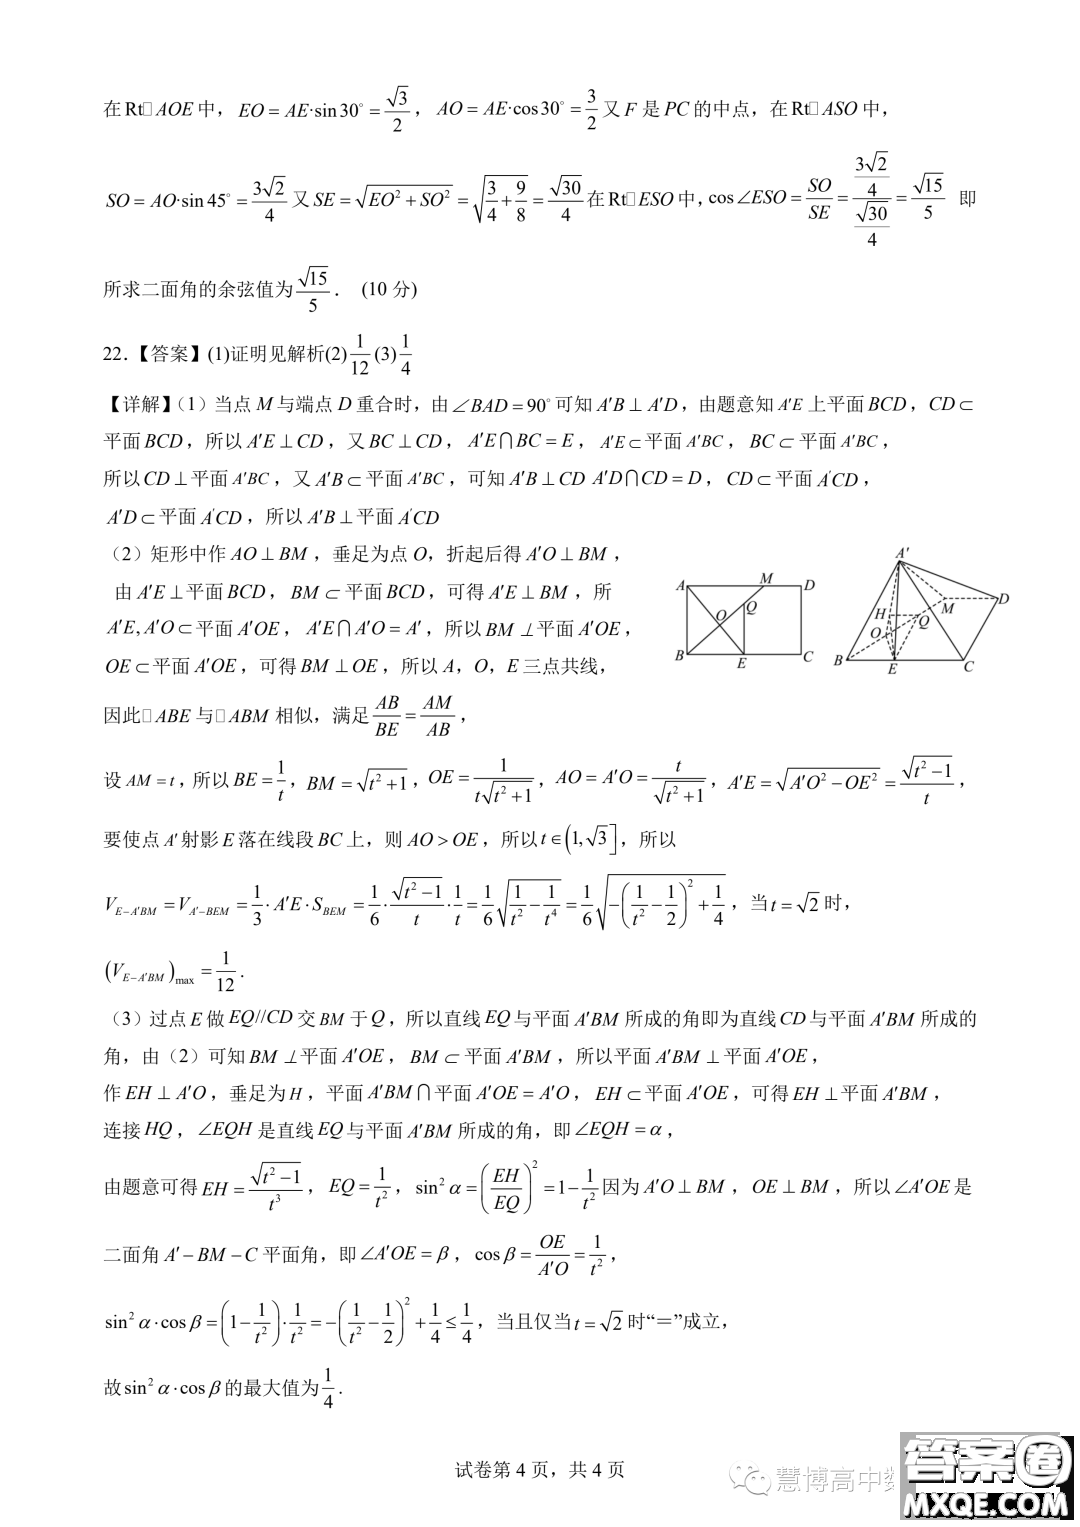 在Rt□AOE中，EO = AE·sin30° = √3/2，AO = AE·cos30° = 3/2 又F 是PC的中点，在Rt□ASO中，
SO = AO·sin45° = 3√2/4 又SE = √(EO² + SO²) = √(3/4 + 9/8) = √30/4 在Rt□ESO中，cos∠ESO = SO/SE = (3√2/4)/(√30/4) = √15/5 即
所求二面角的余弦值为√15/5． (10分)
22．【答案】(1)证明见解析(2)1/12(3)1/4
【详解】（1）当点M与端点D重合时，由∠BAD = 90°可知A′B⊥A′D，由题意知A′E上平面BCD，CD⊂
平面BCD，所以A′E⊥CD，又BC⊥CD，A′E∩BC = E，A′E⊂平面A′BC，BC⊂平面A′BC，
所以CD⊥平面A′BC，又A′B⊂平面A′BC，可知A′B⊥CD A′D∩CD = D，CD⊂平面A′CD，
A′D⊂平面A′CD，所以A′B⊥平面A′CD
（2）矩形中作AO⊥BM，垂足为点O，折起后得A′O⊥BM，
由A′E⊥平面BCD，BM⊂平面BCD，可得A′E⊥BM，所
A′E, A′O⊂平面A′OE，A′E∩A′O = A′，所以BM⊥平面A′OE，
OE⊂平面A′OE，可得BM⊥OE，所以A，O，E三点共线，
A M D
O Q
B E C
A′
M D
H Q
O
B E C
因此□ABE与□ABM相似，满足AB/BE = AM/AB，
设AM = t，所以BE = 1/t，BM = √(t²+1)，OE = 1/(t√(t²+1))，AO = A′O = t/√(t²+1)，A′E = √(A′O² − OE²) = √(t²−1)/t，
要使点A′射影E落在线段BC上，则AO > OE，所以t∈(1, √3]，所以
V_{E−A′BM} = V_{A′−BEM} = 1/3·A′E·S_{BEM} = 1/6·√(t²−1)/t·1/t = 1/6√(1/t² − 1/t⁴) = 1/6√(−(1/t² − 1/2)² + 1/4)，当t = √2时，
(V_{E−A′BM})max = 1/12．
（3）过点E做EQ//CD交BM于Q，所以直线EQ与平面A′BM所成的角即为直线CD与平面A′BM所成的
角，由（2）可知BM⊥平面A′OE，BM⊂平面A′BM，所以平面A′BM⊥平面A′OE，
作EH⊥A′O，垂足为H，平面A′BM∩平面A′OE = A′O，EH⊂平面A′OE，可得EH⊥平面A′BM，
连接HQ，∠EQH是直线EQ与平面A′BM所成的角，即∠EQH = α，
由题意可得EH = √(t²−1)/t³，EQ = 1/t²，sin²α = (EH/EQ)² = 1 − 1/t² 因为A′O⊥BM，OE⊥BM，所以∠A′OE是
二面角A′−BM−C平面角，即∠A′OE = β，cosβ = OE/A′O = 1/t²，
sin²α·cosβ = (1 − 1/t²)·1/t² = −(1/t² − 1/2)² + 1/4 ≤ 1/4，当且仅当t = √2时“＝”成立，
故sin²α·cosβ的最大值为1/4．
试卷第4页，共4页
慧博高中数
答案圈
MXQE.COM